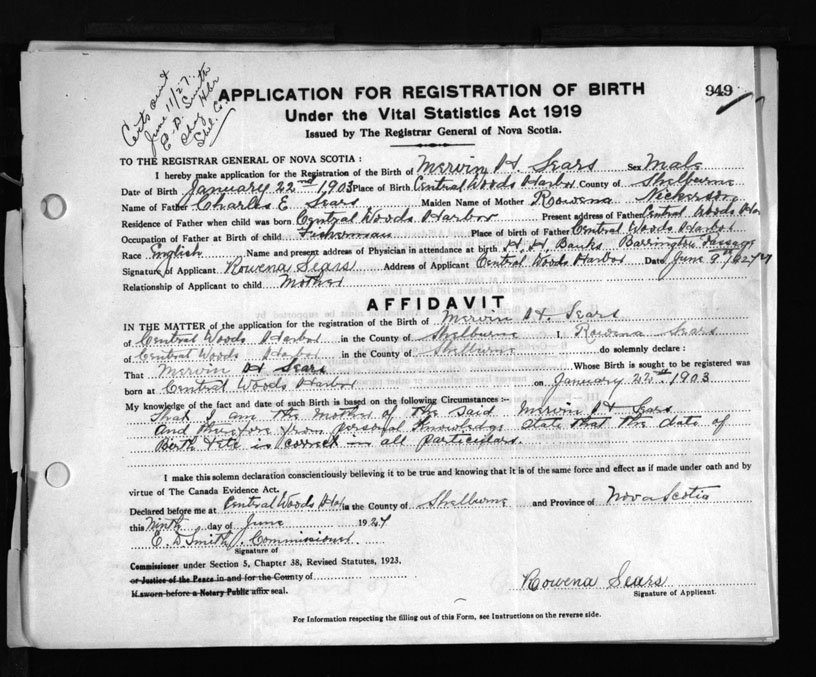 Certs out
June 11/27.
E. D. Smith
Shag Hbr
Shel. Co.
949
APPLICATION FOR REGISTRATION OF BIRTH
Under the Vital Statistics Act 1919
Issued by The Registrar General of Nova Scotia.
TO THE REGISTRAR GENERAL OF NOVA SCOTIA :
I hereby make application for the Registration of the Birth of Mervin H Sears Sex Male
Date of Birth January 22nd 1903 Place of Birth Central Woods Harbor County of Shelburne
Name of Father Charles E. Sears Maiden Name of Mother Rowena Nickerson
Residence of Father when child was born Central Woods Harbor Present address of Father Central Woods Ha
Occupation of Father at Birth of child Fisherman Place of birth of Father Central Woods Harbor
Race English Name and present address of Physician in attendance at birth H. H. Banks Barrington Passage
Signature of Applicant Rowena Sears Address of Applicant Central Woods Harbor Date June 9th
Relationship of Applicant to child Mother
AFFIDAVIT
IN THE MATTER of the application for the registration of the Birth of Mervin H. Sears
of Central Woods Harbor in the County of Shelburne I, Rowena Sears
of Central Woods Harbor in the County of Shelburne do solemnly declare :
That Mervin H Sears Whose Birth is sought to be registered was
born at Central Woods Harbor on January 22nd. 1903
My knowledge of the fact and date of such Birth is based on the following Circumstances :-
That I am the mother of the said Mervin H Sears
and therefore from personal knowledge state that the date of
Birth is correct in all particulars.
I make this solemn declaration conscientiously believing it to be true and knowing that it is of the same force and effect as if made under oath and by
virtue of The Canada Evidence Act.
Declared before me at Central Woods Ha in the County of Shelburne and Province of Nova Scotia
this Ninth day of June 1927
E. D Smith, Commissioner.
Signature of
Commissioner under Section 5, Chapter 38, Revised Statutes, 1923.
or Justice of the Peace in and for the County of
If sworn before a Notary Public affix seal.
Rowena Sears
Signature of Applicant.
For Information respecting the filling out of this Form, see Instructions on the reverse side.